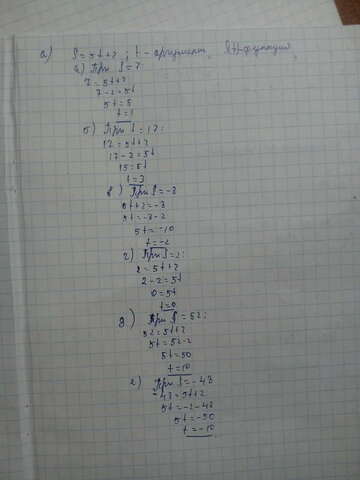 а) S=5t+2; t - аргумент, S(t)-функция,
а) При S=7
7=5t+2
7-2=5t
5t=5
t=1
б) При S=17:
17=5t+2
17-2=5t
15=5t
t=3
в) При S=-8
5t+2=-8
5t=-8-2
5t=-10
t=-2
г) При S=2:
2=5t+2
2-2=5t
0=5t
t=0
д) При S=52:
52=5t+2
5t=52-2
5t=50
t=10
е) При S=-48
-48=5t+2
5t=-2-48
5t=-50
t=-10